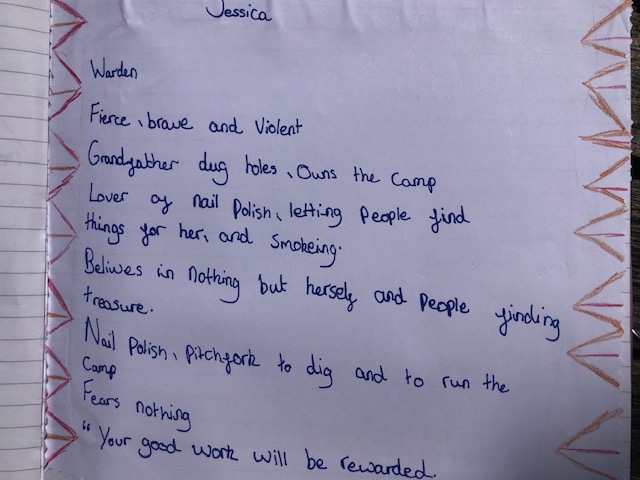 Jessica
Warden
Fierce, brave and Violent
Grandfather dug holes, Owns the Camp
Lover of nail Polish, letting People find
things for her, and Smokeing.
Beliwes in Nothing but herself and People finding
treasure.
Nail Polish, Pitchfork to dig and to run the
Camp
Fears nothing
"Your good work will be rewarded.